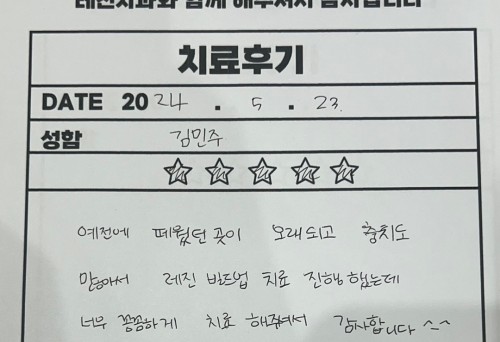 레진치과와 함께 해주셔서 감사합니다
치료후기
DATE 2024 . 5 . 23.
성함 김민주
예전에 떼웠던 곳이 오래되고 충치도
많아서 레진 빌드업 치료 진행했는데
너무 꼼꼼하게 치료 해줘서 감사합니다 ^-^